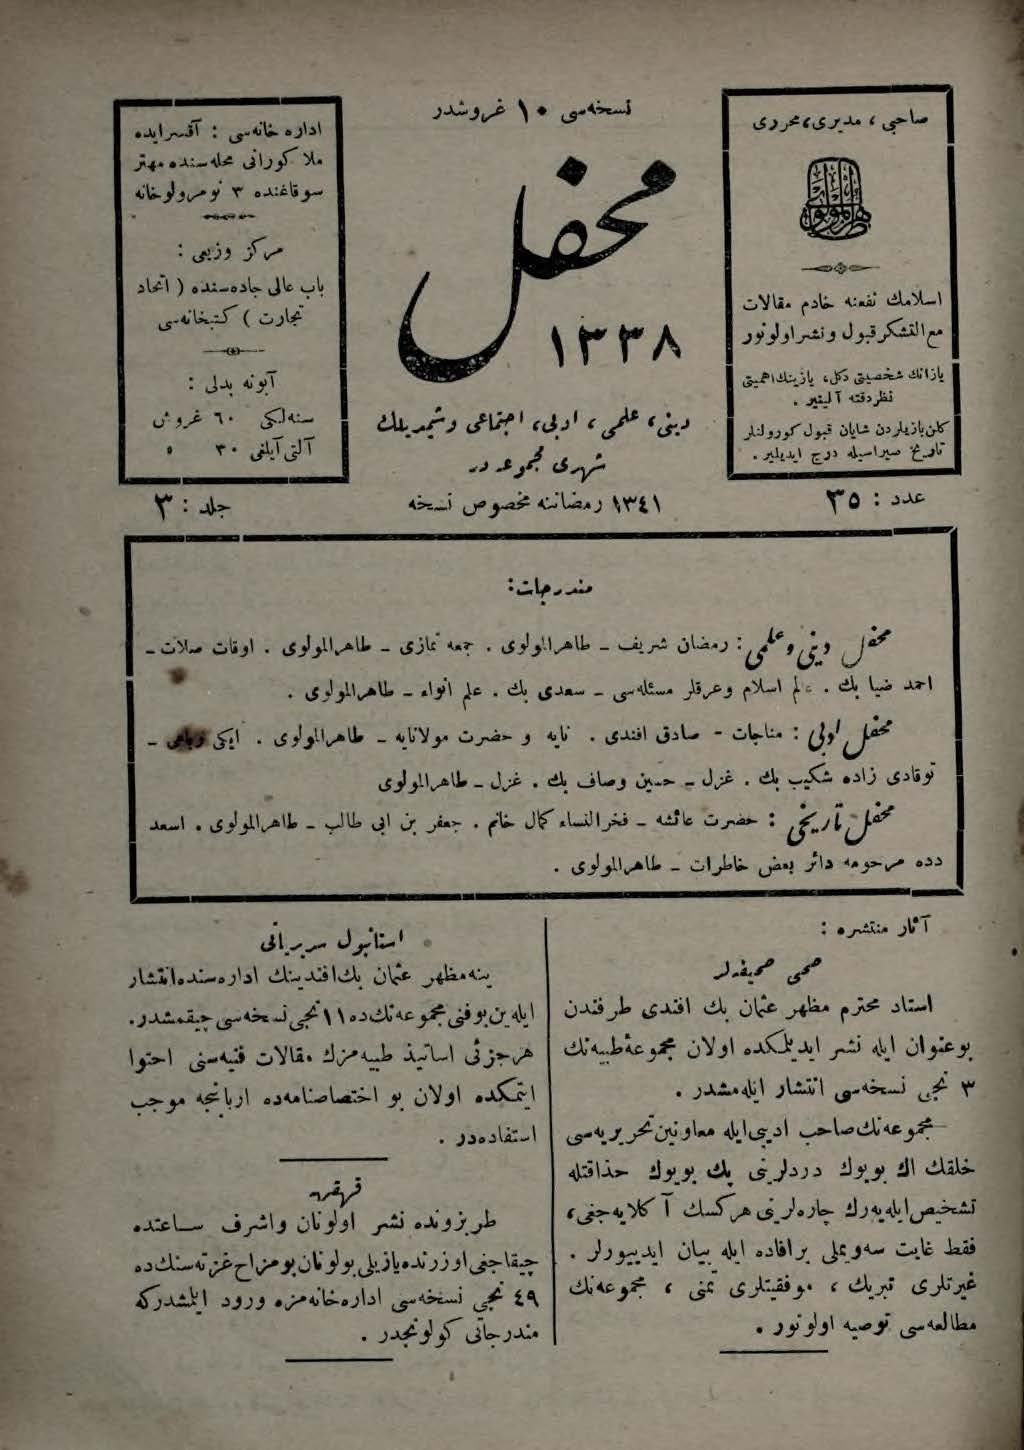 نسخه‌سی ۱۰ غروشدر
صاحبی ، مدیری ، محرری
طاهر المولوی
اسلامك نفعنه خادم مقالات
مع التشكر قبول و نشر اولونور
یازانك شخصیتی دكل ، یازینك اهمیتی
نظر دقته آلینیر .
كلن یازیلردن شایان قبول كورولنلر
تاریخ صیراسیله درج ایدیلیر .
محفل
۱۳۳۸
دینی ، علمی ، ادبی ، اجتماعی و شیمدیلك
شهری مجموعه‌در
اداره خانه‌سی : آقسرایده
ملا كورانی محله‌سنده مهتر
سوقاغنده ۳ نومرولو خانه
مركز وزیعی :
باب عالی جاده‌سنده ( اتحاد
تجارت ) كتبخانه‌سی
آبونه بدلی :
سنه‌لكی ٦۰ غروش
آلتی آیلغی ۳۰ »
عدد : ۳۵
۱۳٤۱ رمضاننه مخصوص نسخه
جلد : ۳
مندرجات :
محفل دینی و علمی : رمضان شریف – طاهرالمولوی . جمعه نمازی – طاهرالمولوی . اوقات صلات –
احمد ضیا بك . عالم اسلام و عرقلر مسئله‌سی – سعدی بك . علم انواء – طاهرالمولوی .
محفل ادبی : مناجات – صادق افندی . نایه و حضرت مولانایه – طاهرالمولوی . ایكی رباعی –
توقادی زاده شكیب بك . غزل – حسین وصاف بك . غزل – طاهرالمولوی
محفل تاریخی : حضرت عائشه – فخرالنساء كمال خانم . جعفر بن ابی طالب – طاهرالمولوی . اسعد
دده مرحومه دائر بعض خاطرات – طاهرالمولوی .
آثار منتشره :
صحی صحیفه‌لر
استاد محترم مظهر عثمان بك افندی طرفندن
بوعنوان ایله نشر ایدیلمكده اولان مجموعهٔ طبیه‌نك
۳ نجی نسخه‌سی انتشار ایله‌مشدر .
مجموعه‌نك صاحب ادیبی ایله معاونین تحریریه‌سی
خلقك اك بویوك دردلرینی پك بویوك حذاقتله
تشخیص ایله‌یه‌رك چاره‌لرینی هركسك آكلایه‌جغی ،
فقط غایت سه‌ویملی بر افاده ایله بیان ایدییورلر .
غیرتلری تبریك ، موفقیتلری تمنی ، مجموعه‌نك
مطالعه‌سی توصیه اولونور .
استانبول سریریاتی
ینه مظهر عثمان بك افندینك اداره‌سنده انتشار
ایله‌ین بو فنی مجموعه‌نك ده ۱۱ نجی نسخه‌سی چیقمشدر.
هر جزئی اساتیذ طبیه‌مزك مقالات فنیه‌سنی احتوا
ایتمكده اولان بو اختصاصنامه‌ده اربابنجه موجب
استفاده‌در .
قهقهه
طربزونده نشر اولونان و اشرف ساعتده
چیقاجغی اوزرنده یازیلی بولونان بو مزاح غزته‌سنك ده
٤۹ نجی نسخه‌سی اداره‌خانه‌مزه ورود ایلمشدركه
مندرجاتی كولونجدر .